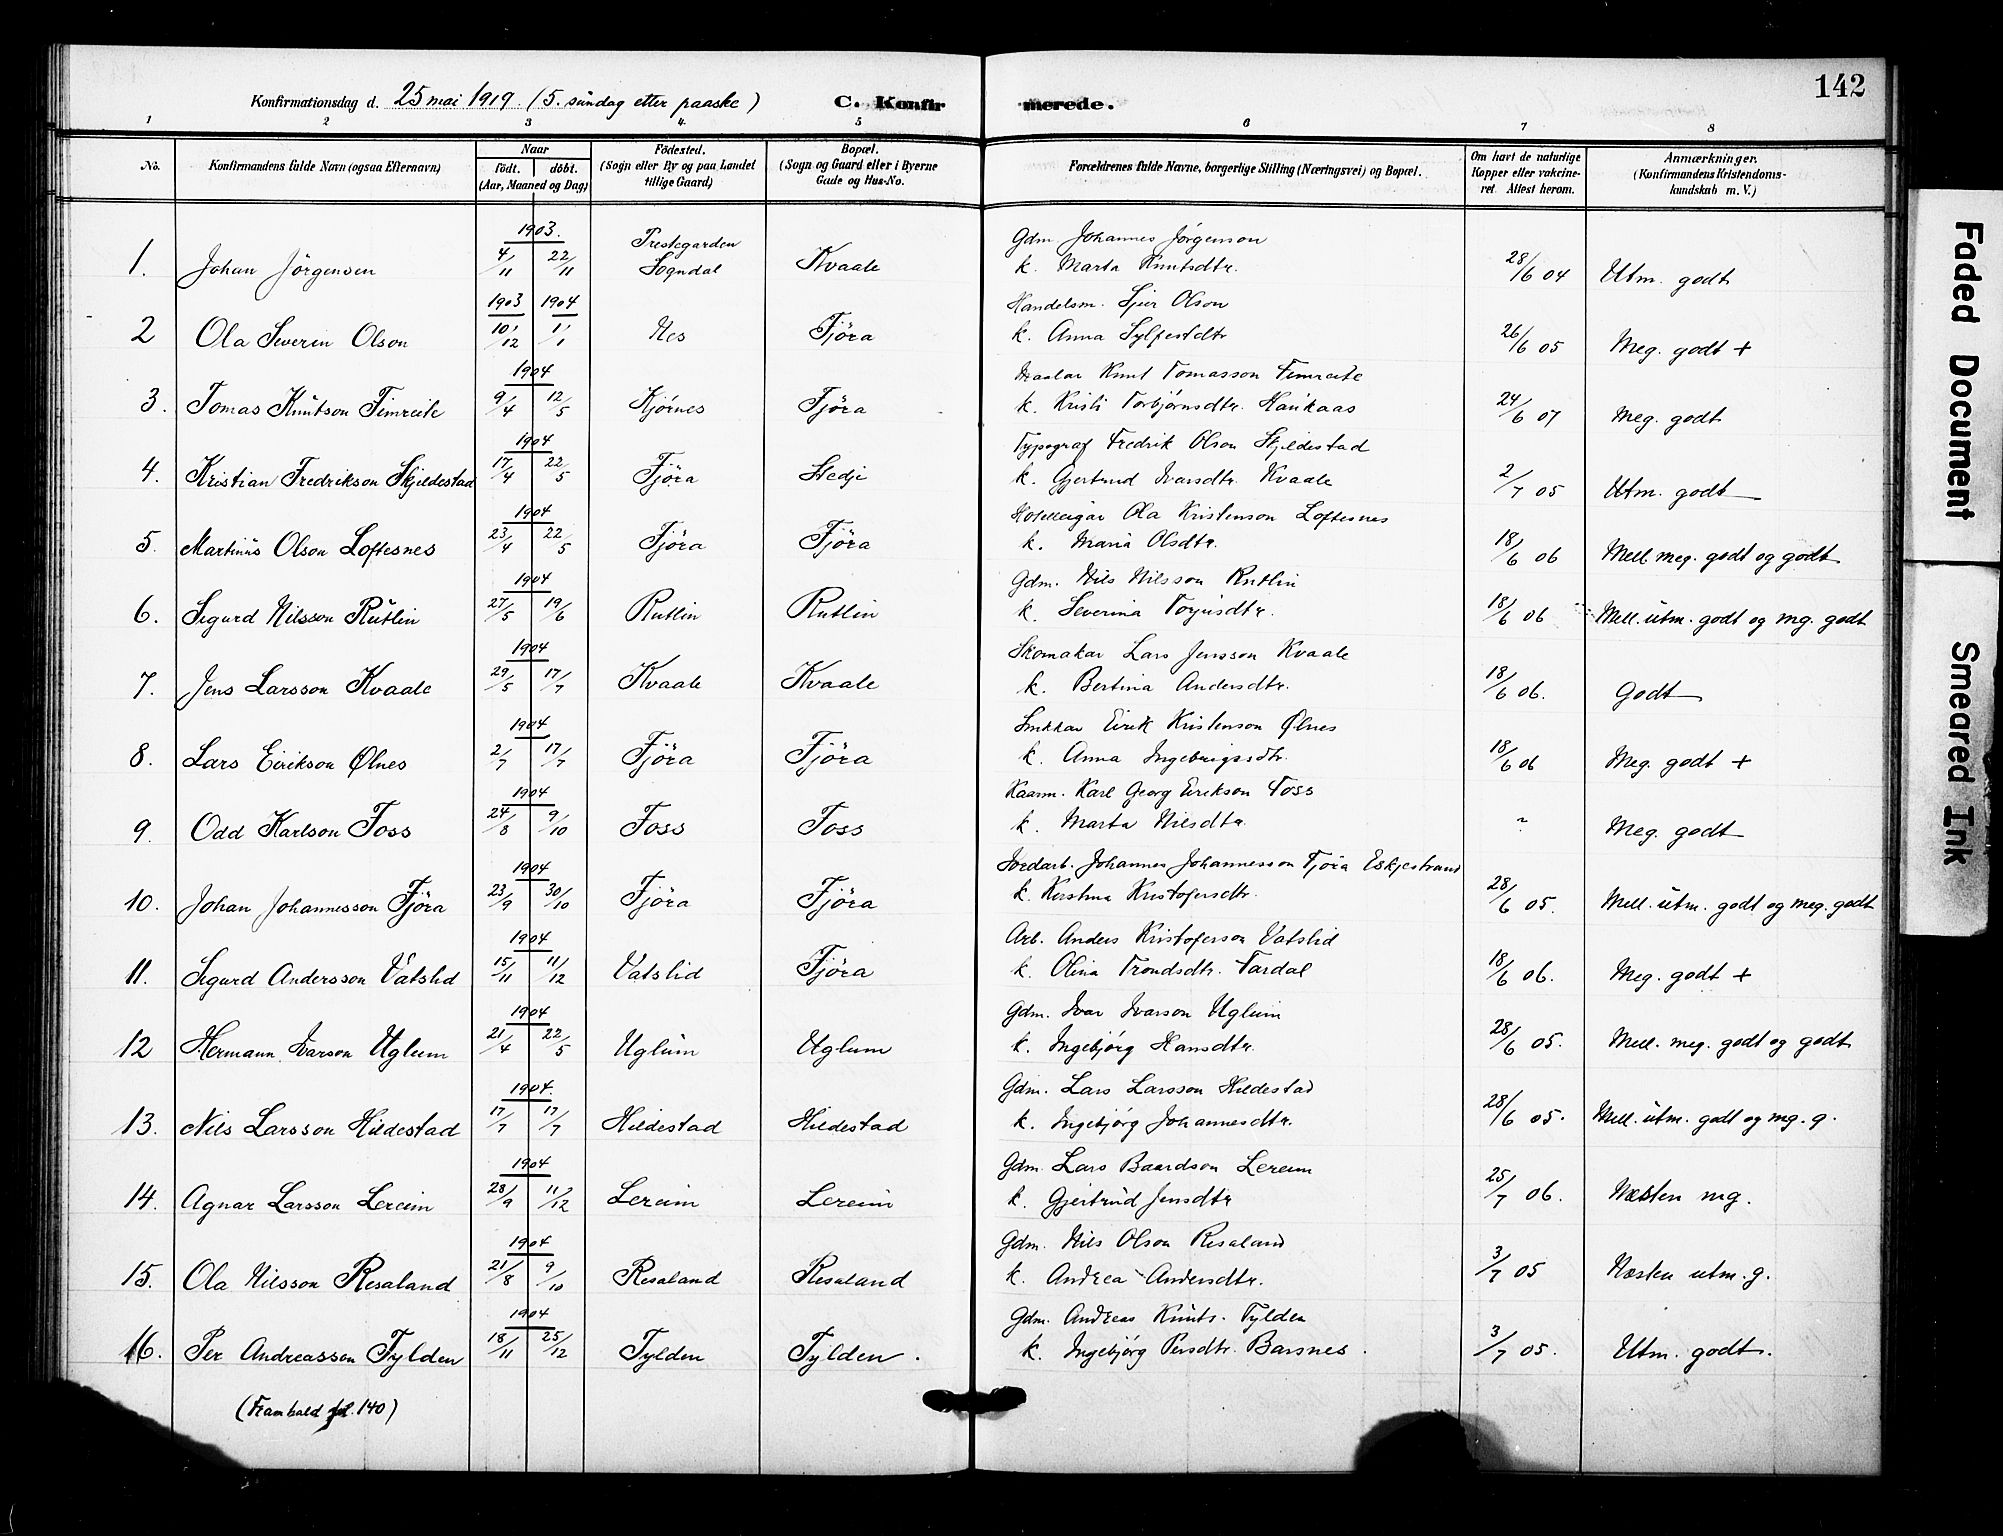 142
Konfirmationsdag d. 25 mai 1919. (5. sundag etter paaske) C. Konfirmerede.
1 2 3 4. 5 6 7 8
No. Konfirmandens fulde Navn (ogsaa Efternavn) Naar født. døbt. (Aar, Maaned og Dag) Födested. (Sogn eller By og paa Landet tillige Gaard) Bopæl. (Sogn og Gaard eller i Byerne Gade og Hus-No. Forældrenes fulde Navne, borgerlige Stilling (Næringsvei) og Bopæl. Om havt de naturlige Kopper eller vakcineret. Attest herom. Anmærkninger. (Konfirmandens Kristendomskundskab m. V.)
1903. Prestegarden Gdm Johannes Jørgenson
1. Johan Jörgensen 4/11 22/11 Sogndal Kvaale k. Marta Knutsdtr. 28/6 04 Utm. godt
1903 1904 Handelsm. Sjur Olson
2 Ola Severin Olson 10/12 1/1 Nes Fjöra k. Anna Sylfestdtr 26/6 05 Meg. godt +
1904 Knut Tomasson Fimreite
3. Tomas Knutson Fimreite 9/4 12/5 Kjørnes Fjöra k. Kristi Torbjørnsdtr. Haukaas 24/6 07 Meg. godt
1904 Typograf Fredrik Olson Skjeldestad
4. Kristian Fredrikson Skjeldestad 17/4 22/5 Fjöra Stedje k. Gjertrud Ivarsdtr. Kvaale 2/7 05 Utm. godt
1904 Hotelleigar Ola Kristenson Loftesnes
5. Martinus Olson Loftesnes 23/4 22/5 Fjöra Fjöra k. Maria Olsdtr. 18/6 06 Mell. meg. godt og godt
1904 Gdm. Nils Nilsson Rutlin
6. Sigurd Nilsson Rutlin 27/5 19/6 Rutlin Rutlin k. Severina Torjusdtr. 18/6 06 Mell. utm. godt og mg. godt
1904 Skomakar Lars Jensson Kvaale
7. Jens Larsson Kvaale 29/5 17/7 Kvaale Kvaale k. Bertina Andersdtr. 18/6 06. Godt
1904 Snikkar Eirik Kristenson Ølnes
8. Lars Eirikson Ølnes 2/7 17/7 Fjöra Fjöra k. Anna Ingebrigtsdtr. 18/6 06 Meg. godt +
1904 Kaarm. Karl Georg Eirikson Foss
9. Odd Karlson Foss 24/8 9/10 Foss Foss k. Marta Nilsdtr. ? Meg. godt
1904 Jordarb. Johannes Johannesson Fjøra Eskjestrand
10. Johan Johannesson Fjöra 23/9 30/10 Fjöra Fjöra k. Kirstina Kristofersdtr. 28/6 05. Mell. utm. godt og meg. godt
1904 Arb. Anders Kristoferson Vatslid
11. Sigurd Andersson Vatslid 15/11 11/12 Vatslid Fjöra k. Olina Trondsdtr. Tardal 18/6 06. Meg. godt +
1904 Gdm. Ivar Ivarson Uglum
12 Hermann Ivarson Uglum 21/4 22/5 Uglum Uglum k. Ingebjørg Hansdtr. 28/6 05. Mell. meg. godt og godt
1904. Gdm. Lars Larsson Hildestad
13. Nils Larsson Hildestad 17/7 17/7 Hildestad Hildestad k. Ingebjørg Johannesdtr. 28/6 05. Mell. utm. godt og mg. g.
1904 Gdm. Lars Baardson Lereim
14. Agnar Larsson Lereim 28/9 11/12 Lereim Lereim k. Gjertrud Jensdtr 25/7 06. Næsten mg.
1904 Gdm. Nils Olson Resaland
15. Ola Nilsson Resaland 21/8 9/10 Resaland Resaland k. Andrea Andersdtr. 3/7 05 Næsten utm. g.
1904 Gdm. Andreas Knuts. Tylden
16. Per Andreasson Tylden 18/11 25/12 Tylden Tylden. k. Ingebjørg Persdtr. Barsnes. 3/7 05. Utm. godt.
(Framhald fol. 140)
Faded Document
Smeared Ink